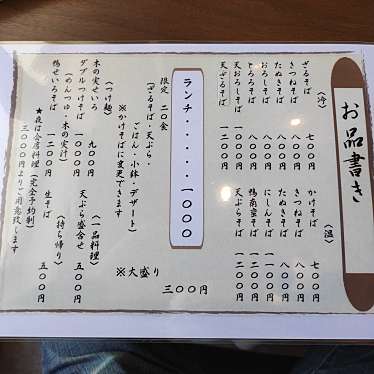 お品書き
（冷）
ざるそば 七〇〇円
きつねそば 八〇〇円
たぬきそば 八〇〇円
おろしそば 八〇〇円
とろろそば 八〇〇円
天おろしそば 一二〇〇円
天ざるそば 一二〇〇円
（温）
かけそば 七〇〇円
きつねそば 八〇〇円
たぬきそば 八〇〇円
にしんそば 一一〇〇円
鴨南蛮そば 一二〇〇円
天ぷらそば 一二〇〇円
ランチ・・・・・・一〇〇〇
限定 二〇食
（ざるそば・天ぷら・
ごはん・小鉢・デザート）
※かけそばに変更できます
※大盛り 三〇〇円
（つけ麺）
木の実せいろ 九〇〇円
ダブルつけそば
（めんつゆ・木の実汁）
鴨せいろそば 一二〇〇円
（一品料理）
天ぷら盛合せ 八〇〇円
（持ち帰り）
生そば 五〇〇円
★夜は会席料理（完全予約制）
三〇〇〇円よりご用意致します